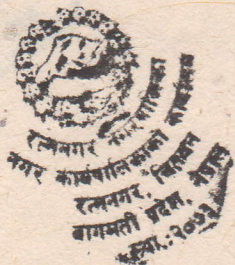 रत्ननगर नगरपालिका
नगर कार्यपालिकाको कार्यालय
रत्ननगर, चितवन
बागमती प्रदेश, नेपाल
स्था.: २०७३